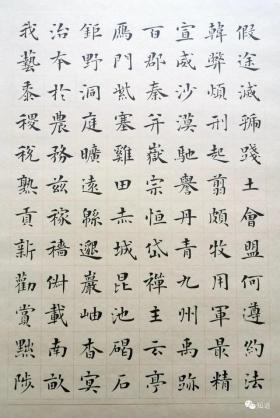 假途滅虢踐土會盟何遵約法
韓弊煩刑起翦頗牧用軍最精
宣威沙漠馳譽丹青九州禹跡
百郡秦并嶽宗恒岱禪主云亭
鴈門紫塞雞田赤城昆池碣石
鉅野洞庭曠遠緜邈巖岫杳冥
治本於農務茲稼穡俶載南畝
我藝黍稷稅熟貢新勸賞黜陟
知道